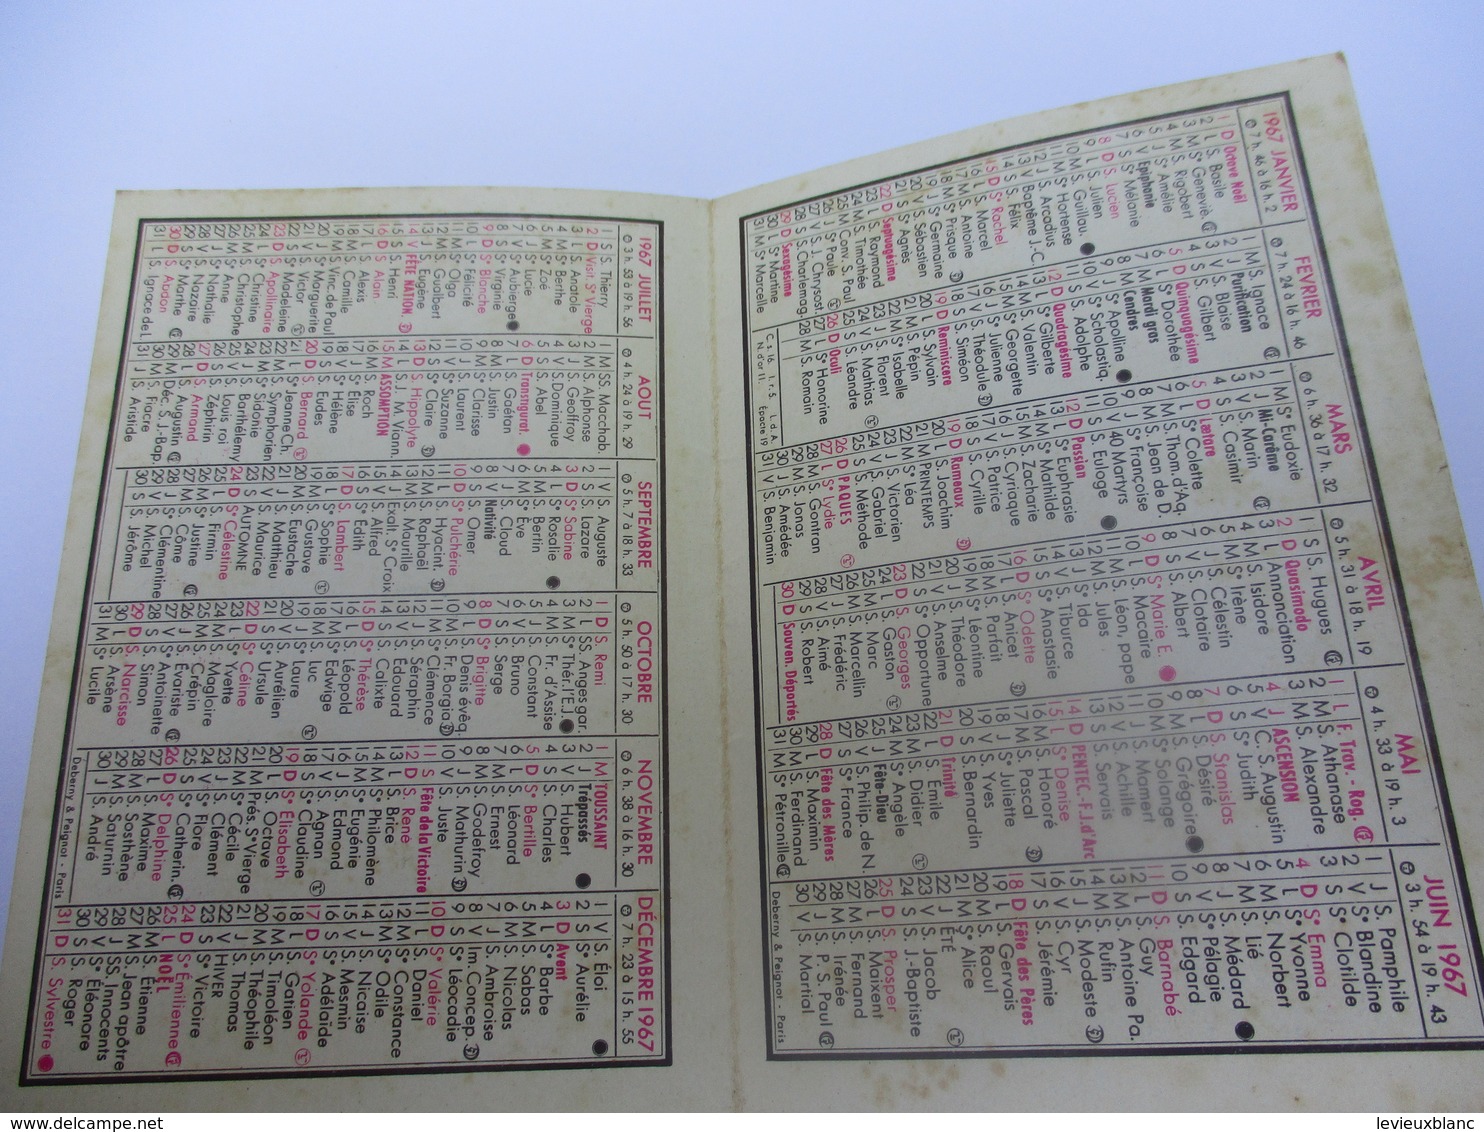 1967 JANVIER
7 h. 46 à 16 h. 2
1 D Octave Noël
2 L S. Basile
3 M Sᵉ Geneviè.
4 M S. Rigobert
5 J Sᵉ Amélie
6 V Epiphanie
7 S Sᵉ Mélanie
8 D S. Lucien
9 L S. Julien
10 M S. Guillau.
11 M Sᵉ Hortense
12 J S. Arcadius
13 V Baptême J.-C.
14 S S. Félix
15 D Sᵉ Rachel
16 L S. Marcel
17 M S. Antoine
18 M Sᵉ Prisque
19 J Sᵉ Germaine
20 V S. Sébastien
21 S Sᵉ Agnès
22 D Septuagésime
23 L S. Raymond
24 M S. Timothée
25 M Conv. S. Paul
26 J Sᵉ Paule
27 V S. J. Chrysost.
28 S S. Charlemag.
29 D Sexagésime
30 L Sᵉ Martine
31 M Sᵉ Marcelle
FEVRIER
7 h. 24 à 16 h. 46
1 M S. Ignace
2 J Purification
3 V S. Blaise
4 S S. Gilbert
5 D Quinquagésime
6 L Sᵉ Dorothée
7 M Mardi gras
8 M Cendres
9 J Sᵉ Apolline
10 V Sᵉ Scholastiq.
11 S S. Adolphe
12 D Quadragésime
13 L Sᵉ Gilberte
14 M S. Valentin
15 M Sᵉ Georgette
16 J Sᵉ Julienne
17 V S. Théodule
18 S S. Siméon
19 D Reminiscere
20 L S. Sylvain
21 M S. Pépin
22 M Sᵉ Isabelle
23 J S. Florent
24 V S. Mathias
25 S S. Léandre
26 D Oculi
27 L Sᵉ Honorine
28 M S. Romain
C. s. 16. I. r. 5. L. d. A.
N. d'or 11. Epacte 19
MARS
6 h. 36 à 17 h. 32
1 M Sᵉ Eudoxie
2 J Mi-Carême
3 V S. Marin
4 S S. Casimir
5 D Lætare
6 L Sᵉ Colette
7 M S. Thom. d'Aq.
8 M S. Jean de D.
9 J Sᵉ Françoise
10 V 40 Martyrs
11 S S. Euloge
12 D Passion
13 L Sᵉ Euphrasie
14 M Sᵉ Mathilde
15 M S. Zacharie
16 J S. Cyriaque
17 V S. Patrice
18 S S. Cyrille
19 D Rameaux
20 L S. Joachim
21 M PRINTEMPS
22 M Sᵉ Léa
23 J S. Victorien
24 V S. Gabriel
25 S S. Méthode
26 D PAQUES
27 L Sᵉ Lydie
28 M S. Gontran
29 M S. Jonas
30 J S. Amédée
31 V S. Benjamin
AVRIL
5 h. 31 à 18 h. 19
1 S S. Hugues
2 D Quasimodo
3 L Annonciation
4 M S. Isidore
5 M Sᵉ Irène
6 J S. Célestin
7 V S. Clotaire
8 S S. Albert
9 D Sᵉ Marie E.
10 L S. Macaire
11 M S. Léon, pape
12 M S. Jules
13 J Sᵉ Ida
14 V S. Tiburce
15 S Sᵉ Anastasie
16 D Sᵉ Odette
17 L S. Anicet
18 M S. Parfait
19 M Sᵉ Léontine
20 J S. Théodore
21 V S. Anselme
22 S Sᵉ Opportune
23 D S. Georges
24 L S. Gaston
25 M S. Marc
26 M S. Marcellin
27 J S. Frédéric
28 V S. Aimé
29 S S. Robert
30 D Souven. Déportés
MAI
4 h. 33 à 19 h. 3
1 L F. Trav. - Rog.
2 M S. Athanase
3 M S. Alexandre
4 J ASCENSION
5 V C. S. Augustin
6 S Sᵉ Judith
7 D S. Stanislas
8 L S. Désiré
9 M S. Grégoire
10 M Sᵉ Solange
11 J S. Mamert
12 V S. Achille
13 S S. Servais
14 D PENTEC.-F. J. d'Arc
15 L Sᵉ Denise
16 M S. Honoré
17 M S. Pascal
18 J Sᵉ Juliette
19 V S. Yves
20 S S. Bernardin
21 D Trinité
22 L S. Emile
23 M S. Didier
24 M Sᵉ Angèle
25 J Fête-Dieu
26 V S. Philip. de N.
27 S Sᵉ France
28 D Fête des Mères
29 L S. Maximin
30 M S. Ferdinand
31 M Sᵉ Pétronille
JUIN 1967
3 h. 54 à 19 h. 43
1 J S. Pamphile
2 V Sᵉ Blandine
3 S Sᵉ Clotilde
4 D Sᵉ Emma
5 L Sᵉ Yvonne
6 M S. Norbert
7 M S. Lié
8 J S. Médard
9 V Sᵉ Pélagie
10 S S. Edgard
11 D S. Barnabé
12 L S. Guy
13 M S. Antoine Pa.
14 M S. Rufin
15 J S. Modeste
16 V S. Cyr
17 S S. Jérémie
18 D Fête des Pères
19 L S. Gervais
20 M S. Raoul
21 M Sᵉ Alice
22 J ÉTÉ
23 V S. Jacob
24 S S. J.-Baptiste
25 D S. Prosper
26 L S. Maixent
27 M S. Fernand
28 M S. Irénée
29 J S. P. S. Paul
30 V S. Martial
Deberny & Peignot - Paris
1967 JUILLET
3 h. 53 à 19 h. 56
1 S S. Thierry
2 D Visit. Sᵉ Vierge
3 L S. Anatole
4 M Sᵉ Berthe
5 M Sᵉ Zoé
6 J Sᵉ Lucie
7 V S. Auberge
8 S Sᵉ Virginie
9 D Sᵉ Blanche
10 L Sᵉ Félicité
11 M Sᵉ Olga
12 M S. Gualbert
13 J S. Eugène
14 V FÊTE NATION.
15 S S. Henri
16 D S. Alain
17 L S. Alexis
18 M S. Camille
19 M S. Vinc. de Paul
20 J Sᵉ Marguerite
21 V S. Victor
22 S Sᵉ Madeleine
23 D S. Apollinaire
24 L Sᵉ Christine
25 M S. Christophe
26 M Sᵉ Anne
27 J Sᵉ Nathalie
28 V S. Nazaire
29 S Sᵉ Marthe
30 D S. Abdon
31 L S. Ignace de L.
AOUT
4 h. 24 à 19 h. 29
1 M SS. Macchab.
2 M S. Alphonse
3 J S. Geoffroy
4 V S. Dominique
5 S S. Abel
6 D Transfigurat.
7 L S. Gaëtan
8 M S. Justin
9 M Sᵉ Clarisse
10 J S. Laurent
11 V Sᵉ Suzanne
12 S Sᵉ Claire
13 D S. Hippolyte
14 L S. J. M. Viann.
15 M ASSOMPTION
16 M S. Roch
17 J S. Elise
18 V Sᵉ Hélène
19 S S. Eudes
20 D S. Bernard
21 L Sᵉ Jeanne Ch.
22 M S. Symphorien
23 M S. Sidonie
24 J S. Barthélemy
25 V S. Louis roi
26 S S. Zéphirin
27 D S. Armand
28 L S. Augustin
29 M Déc. S. J.-Bap.
30 M S. Fiacre
31 J S. Aristide
SEPTEMBRE
5 h. 7 à 18 h. 33
1 V S. Auguste
2 S S. Lazare
3 D Sᵉ Sabine
4 L Sᵉ Rosalie
5 M S. Bertin
6 M Sᵉ Eve
7 J S. Cloud
8 V Nativité
9 S S. Omer
10 D Sᵉ Pulchérie
11 L S. Hyacint.
12 M S. Raphaël
13 M S. Maurille
14 J Exalt. Sᵉ Croix
15 V S. Alfred
16 S Sᵉ Edith
17 D S. Lambert
18 L Sᵉ Sophie
19 M S. Gustave
20 M S. Eustache
21 J S. Matthieu
22 V S. Maurice
23 S AUTOMNE
24 D Sᵉ Célestine
25 L S. Firmin
26 M Sᵉ Justine
27 M S. Côme
28 J Sᵉ Clémentine
29 V S. Michel
30 S S. Jérôme
OCTOBRE
5 h. 50 à 17 h. 30
1 D S. Remi
2 L SS. Anges gar.
3 M Sᵉ Thér. l'E. J.
4 M S. Fr. d'Assise
5 J S. Constant
6 V S. Bruno
7 S S. Serge
8 D Sᵉ Brigitte
9 L S. Denis évêq.
10 M S. Fr. Borgia
11 M Sᵉ Clémence
12 J S. Séraphin
13 V S. Edouard
14 S S. Calixte
15 D Sᵉ Thérèse
16 L S. Léopold
17 M Sᵉ Edwige
18 M S. Luc
19 J Sᵉ Laure
20 V S. Aurélien
21 S Sᵉ Ursule
22 D Sᵉ Céline
23 L Sᵉ Yvette
24 M S. Magloire
25 M S. Crépin
26 J S. Evariste
27 V Sᵉ Antoinette
28 S S. Simon
29 D S. Narcisse
30 L S. Arsène
31 M Sᵉ Lucile
NOVEMBRE
6 h. 38 à 16 h. 30
1 M TOUSSAINT
2 J Trépassés
3 V S. Hubert
4 S S. Charles
5 D Sᵉ Bertille
6 L S. Léonard
7 M S. Ernest
8 M S. Godefroy
9 J S. Mathurin
10 V S. Juste
11 S Fête de la Victoire
12 D S. René
13 L S. Brice
14 M Sᵉ Philomène
15 M Sᵉ Eugénie
16 J S. Edmond
17 V S. Agnan
18 S S. Claudine
19 D Sᵉ Elisabeth
20 L S. Octave
21 M Prés. Sᵉ Vierge
22 M Sᵉ Cécile
23 J S. Clément
24 V Sᵉ Flore
25 S Sᵉ Catherin.
26 D Sᵉ Delphine
27 L S. Maxime
28 M S. Sosthène
29 M S. Saturnin
30 J S. André
DÉCEMBRE 1967
7 h. 23 à 15 h. 55
1 V S. Éloi
2 S Sᵉ Aurélie
3 D Avent
4 L Sᵉ Barbe
5 M S. Sabas
6 M S. Nicolas
7 J S. Ambroise
8 V Im. Concep.
9 S Sᵉ Léocadie
10 D Sᵉ Valérie
11 L S. Daniel
12 M Sᵉ Constance
13 M Sᵉ Odile
14 J S. Nicaise
15 V S. Mesmin
16 S Sᵉ Adélaïde
17 D Sᵉ Yolande
18 L S. Gatien
19 M S. Timoléon
20 M S. Théophile
21 J S. Thomas
22 V HIVER
23 S Sᵉ Victoire
24 D Sᵉ Émilienne
25 L NOËL
26 M S. Etienne
27 M S. Jean apôtre
28 J SS. Innocents
29 V Sᵉ Éléonore
30 S S. Roger
31 D S. Sylvestre
Deberny & Peignot - Paris
www.delcampe.net
levieuxblanc